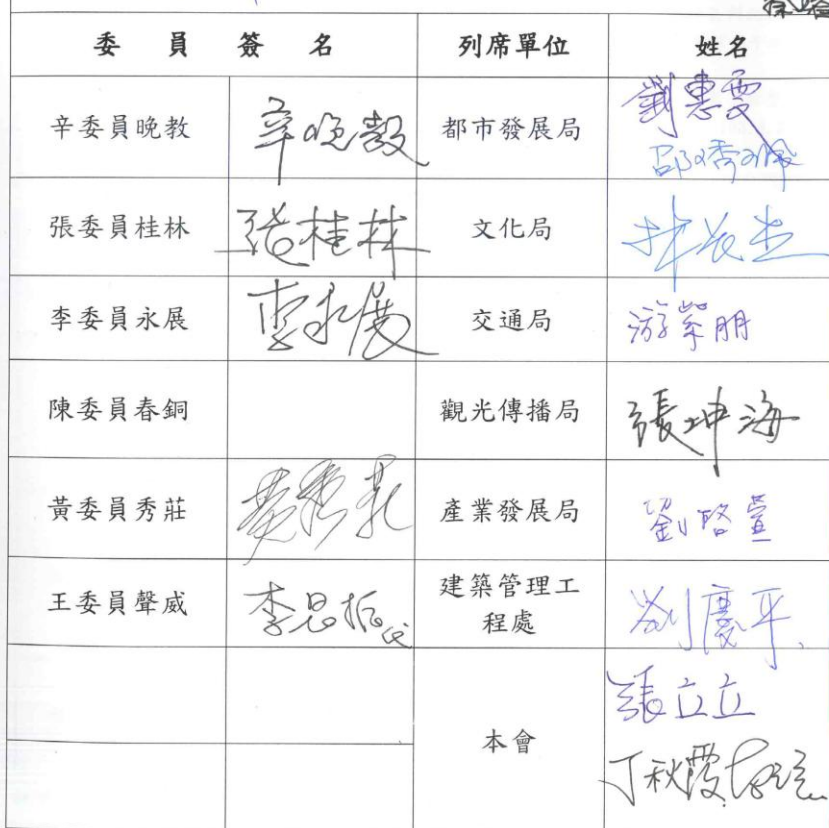 委員簽名 列席單位 姓名
辛委員晚教 辛晚教 都市發展局 劉惠雯
邵琇珮
張委員桂林 張桂林 文化局
李委員永展 李永展 交通局 游紫朋
陳委員春銅 觀光傳播局 張坤海
黃委員秀莊 黃秀莊 產業發展局 劉啓萱
王委員聲威 李昆振代 建築管理工
程處 劉慶平
張立立
本會
丁秋霞